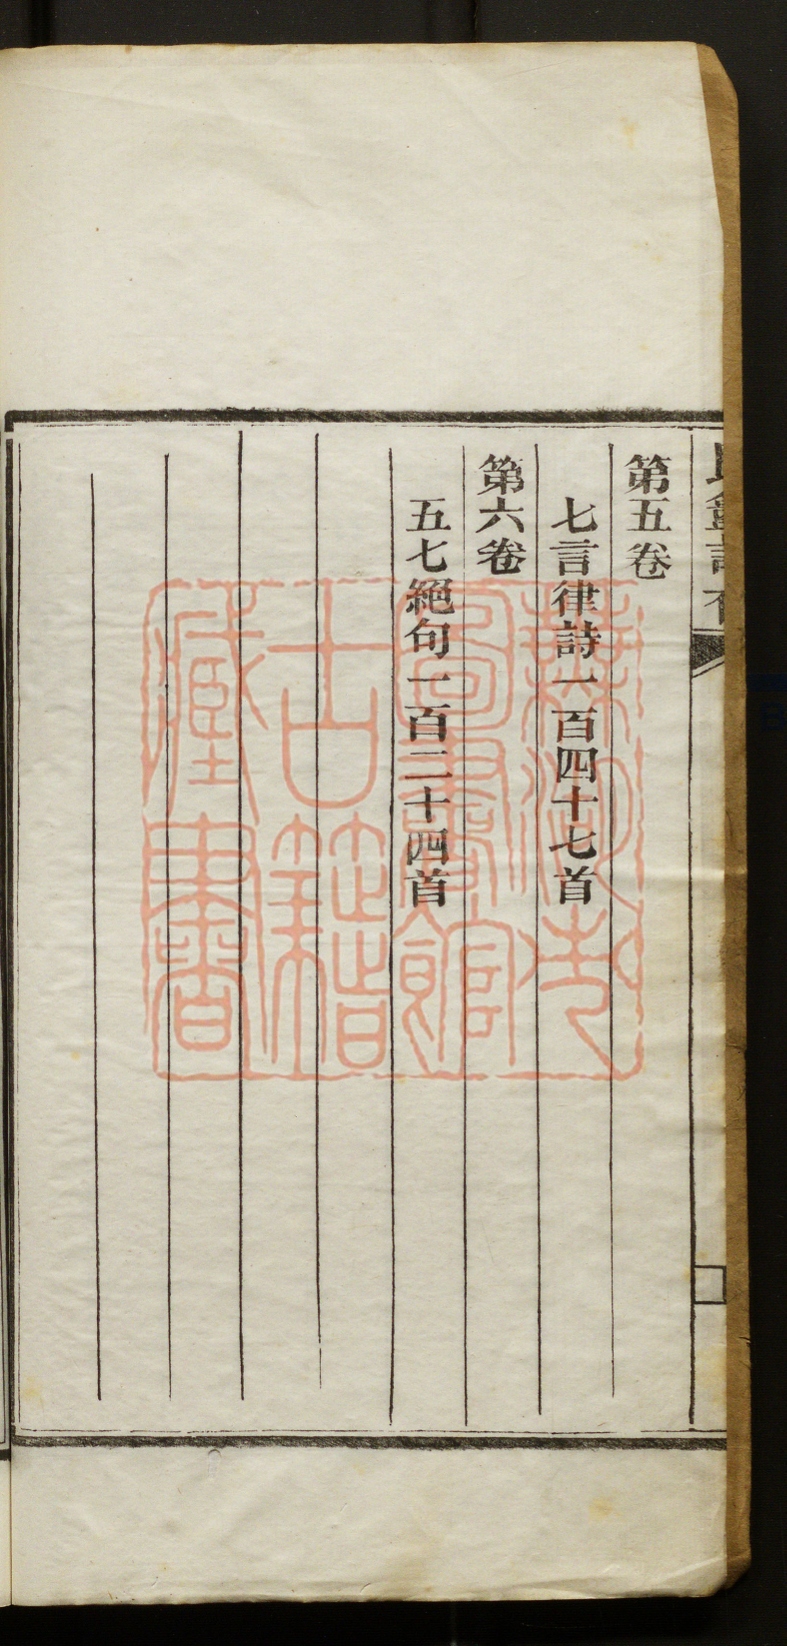 第五卷
七言律詩一百四十七首
第六卷
五七絕句一百二十四首
古籍
藏書